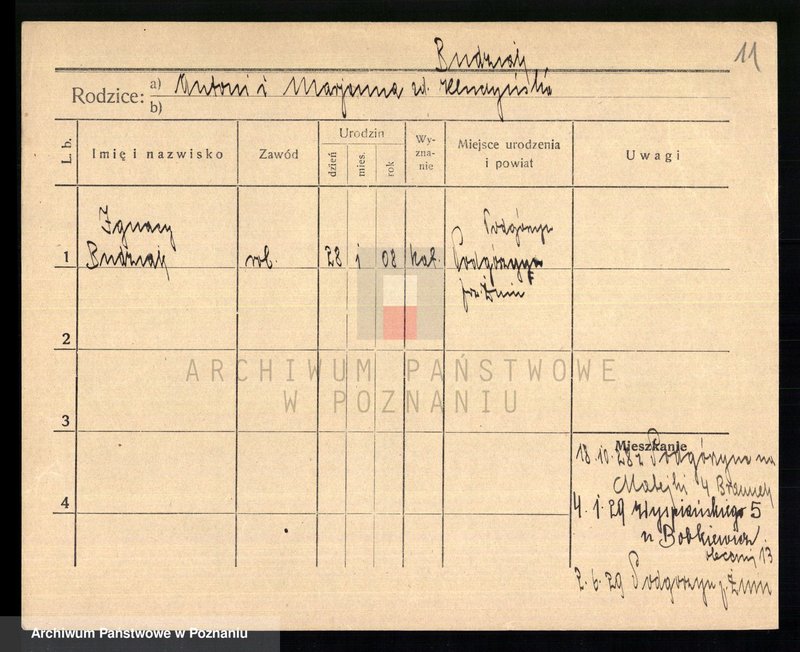 Budziak
11
Rodzice: a) Antoni i Marjanna zd.
b)
L. b.
Imię i nazwisko
Zawód
Urodzin
dzień
mies.
rok
Wy-
zna-
nie
Miejsce urodzenia
i powiat
Uwagi
Ignacy
Budziak
rob.
28
08
kat.
Podgórzyn
pow. Żnin
1
2
3
4
ARCHIWUM PAŃSTWOWE
W POZNANIU
Mieszkanie
18.10.28 z Podgórzyna na
Matejki 4
4.1.29 Wyspiańskiego 5
u Bobkiewicz
obecnij 13
2.6.29 Podgorzyn p. Żnin
Archiwum Państwowe w Poznaniu